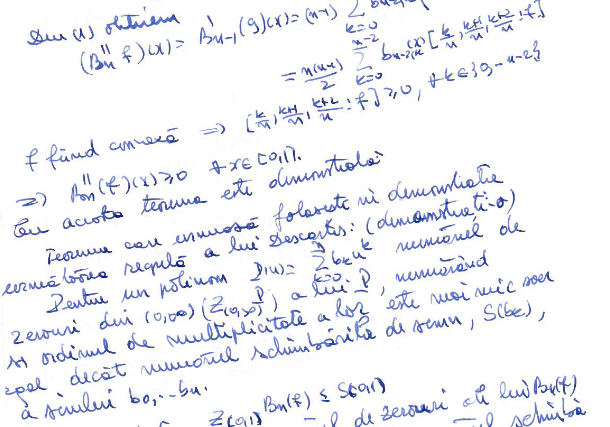 Din (1) obținem
(Bn'' f)(x) = B'n-1 (g)(x) = (n-1) ∑ k=0
= n(n-1)/2 ∑ k=0 n-2 bn-2,k(x) [k/n, k+1/n, k+2/n; f]
f fiind convexă => [k/n, k+1/n, k+2/n; f] ≥ 0, ∀ k∈{0,-n-2}
=> Bn''(f)(x) ≥ 0 ∀ x∈[0,1].
Cu aceasta teorema este demonstrată
Teorema care urmează folosește în demonstrație
următoarea regulă a lui Descartes: (demonstrați-o)
Pentru un polinom P(u) = ∑ k=0 n bk u^k numărul de
zerouri din (0,∞) (Z(0,∞) P) a lui P, numărând
și ordinul de multiplicitate a lor este mai mic sau
egal decât numărul schimbărilor de semn, S(bk),
a șirului b0,..bn.
Z(0,1) Bn(f) ≤ S(0,1)
de zerouri ale lui Bn(f)